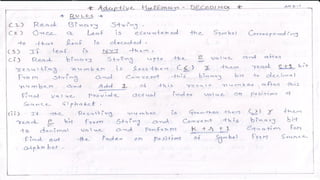 * Adaptive Huffman - DECODING *
* RULES →
(1) Read Binary String.
(2) Once a leaf is encountered the Symbol Corresponding
to that leaf is decoded.
(3) If leaf is NYT then:
(i) Read binary String upto the e value and after
resulting number is less then (<) r then read e+1 bit
From String and Convert this binary bit to decimal
number, and Add 1 of this number after this
find value Provide actual index value on position of
Source Alphabet.
ii) If the Resulting number is Greater then (>) r then
read e bit From String and Convert this binary bit
to decimal value and Perform Equation For
Find out the Index on position of Symbol From Source
Alphabet.